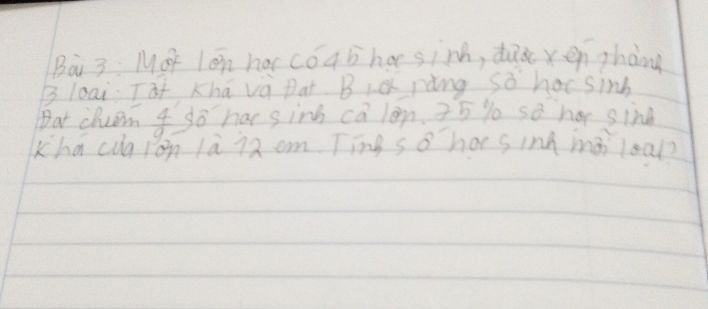 Bài 3: Một lớp học có 45 học sinh, được xếp thành
3 loại: Tốt Khá và Đạt. Biết rằng số học sinh
Đạt chiếm 4/9 số học sinh cả lớp. 75% số học sinh
Khá của lớp là 12 em. Tính số học sinh mỗi loại?